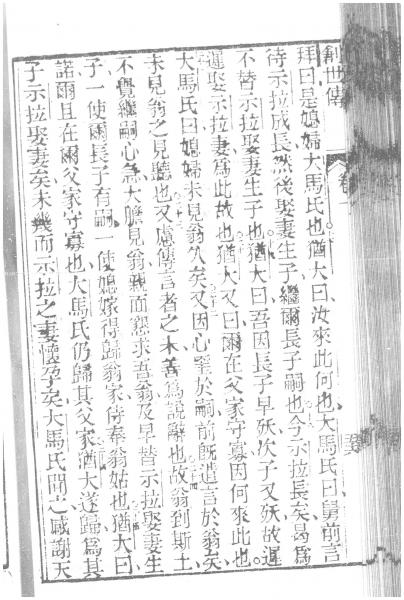 創世傳
卷一
拜曰是媳婦大馬氏也猶大曰汝來此何也大馬氏曰舅前言
待示拉成長然後娶妻生子繼爾長子嗣也今示拉長矣曷爲
不替示拉娶妻生子也猶大曰吾因長子早殀次子又殀故遲
遲娶示拉妻爲此故也猶大又曰爾在父家守寡因何來此也
大馬氏曰媳婦未見翁久矣又因心繫於嗣前旣遣言於翁矣
未見翁之見聽也又慮傳言者之未善爲說辭也故翁到斯土
不覺繼嗣心急大膽見翁覿面懇求吾翁及早替示拉娶妻生
子一使爾長子有嗣一使媳嫁得歸翁家侍奉翁姑也猶大曰
諾爾且在爾父家守寡也大馬氏仍歸其父家猶大遂歸爲其
子示拉娶妻矣未幾而示拉之妻懷孕矣大馬氏聞之感謝天